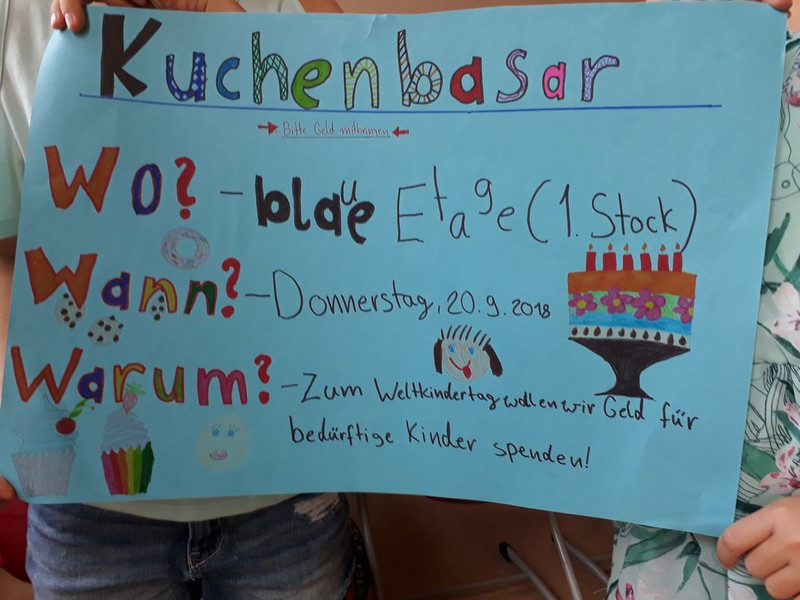 Kuchenbasar
Bitte Geld mitbringen
Wo? - blaue Etage (1. Stock)
Wann? - Donnerstag, 20.9.2018
Warum? - Zum Weltkindertag wollen wir Geld für
bedürftige Kinder spenden!